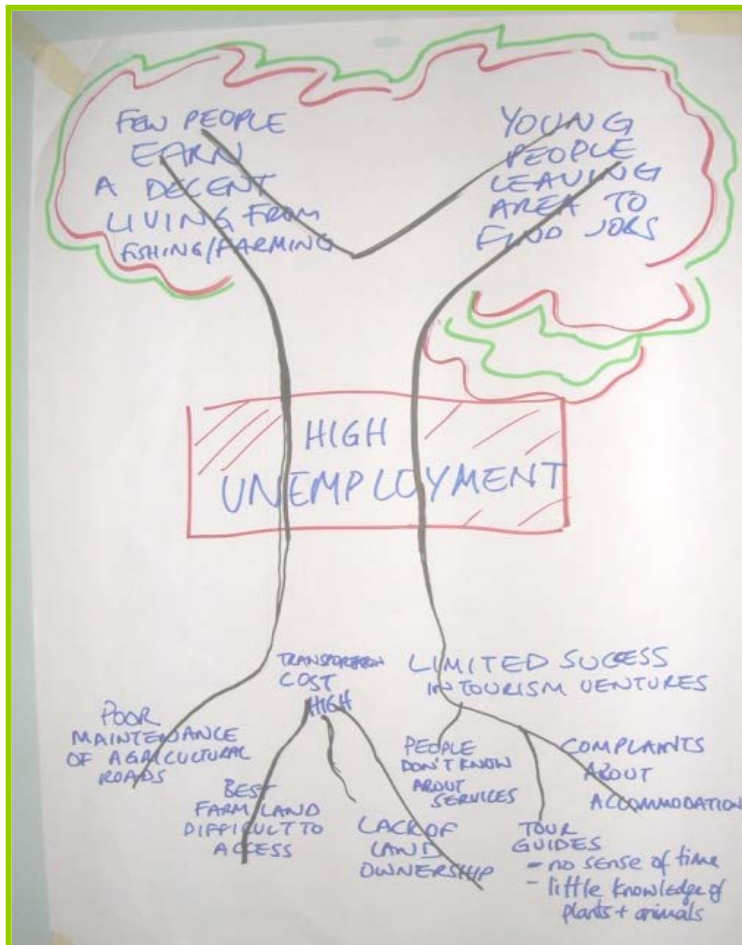 FEW PEOPLE
EARN
A DECENT
LIVING FROM
FISHING/FARMING
YOUNG
PEOPLE
LEAVING
AREA TO
FIND JOBS
HIGH
UNEMPLOYMENT
TRANSPORTATION
COST
HIGH
LIMITED SUCESS
IN TOURISM VENTURES
POOR
MAINTENANCE
OF AGRICULTURAL
ROADS
BEST
FARM LAND
DIFFICULT TO
ACCESS
LACK OF
LAND
OWNERSHIP
PEOPLE
DON'T KNOW
ABOUT
SERVICES
TOUR
GUIDES
- no sense of time
- little knowledge of
plants + animals
COMPLAINTS
ABOUT
ACCOMMODATION